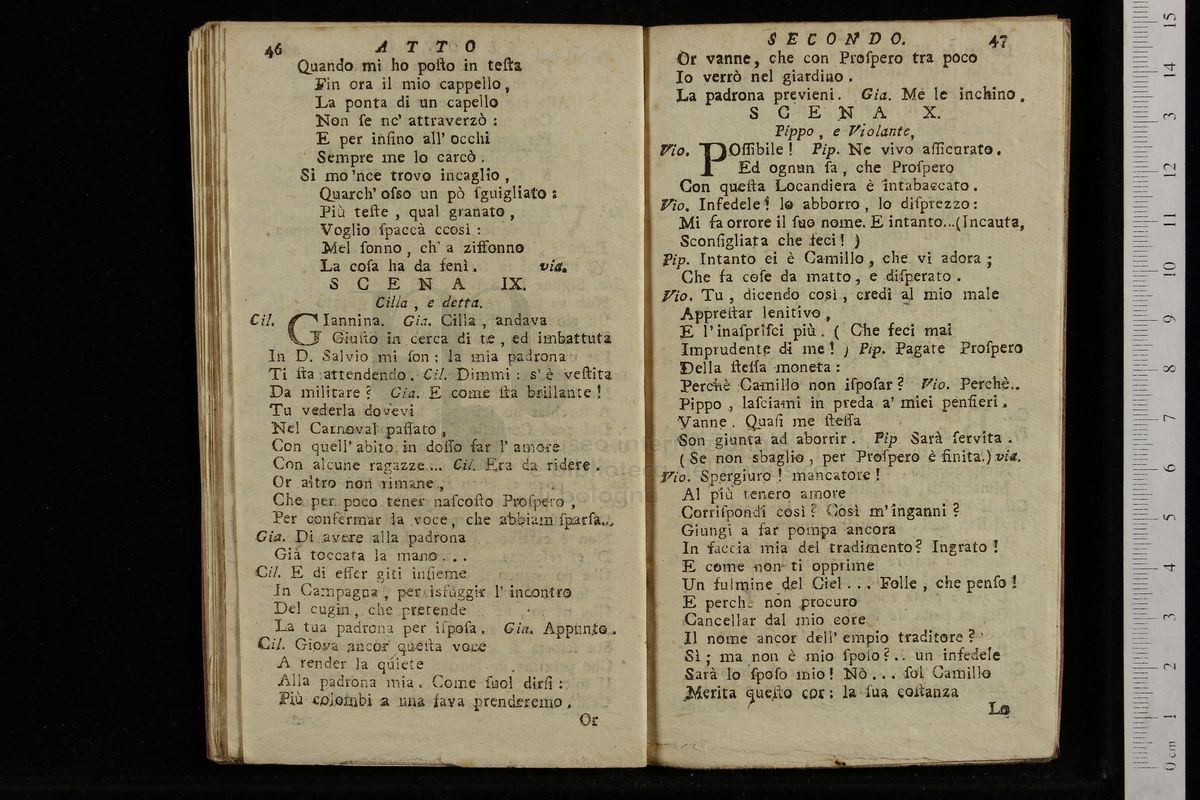 46 ATTO
Quando mi ho poſto in teſta
Fin ora il mio cappello,
La ponta di un capello
Non ſe nc' attraverzò :
E per inſino all' occhi
Sempre me lo carcò .
Si mo 'nce trovo incaglio ,
Quarch' oſso un pò ſguigliato :
Più teſte , qual granato ,
Voglio ſpaccà ccosì :
Mel ſonno , ch' a ziffonno
La coſa ha da fenì . via.
SCENA IX.
Cilla , e detta.
Cil. GIannina. Gia. Cilla , andava
Giuſto in cerca di te , ed imbattuta
In D. Salvio mi ſon : la mia padrona
Ti ſta attendendo . Cil. Dimmi : s' è veſtita
Da militare ? Gia. E come ſta brillante !
Tu vederla dovevi
Nel Carnoval paſſato ,
Con quell' abito in doſſo far l' amore
Con alcune ragazze ... Cil. Era da ridere .
Or altro non rimane ,
Che per poco tener naſcoſto Proſpero ,
Per confermar la voce, che abbiam ſparſa...
Gia. Di avere alla padrona
Già toccata la mano . . .
Cil. E di eſſer giti inſieme
In Campagna , per isfuggir l' incontro
Del cugin , che pretende
La tua padrona per iſpoſa . Gia. Appunto .
Cil. Giova ancor queſta voce
A render la quiete
Alla padrona mia . Come ſuol dirſi :
Più colombi a una fava prenderemo .
Or
SECONDO. 47
Or vanne, che con Proſpero tra poco
Io verrò nel giardino .
La padrona previeni. Gia. Me le inchino .
SCENA X.
Pippo , e Violante,
Vio. POſſibile ! Pip. Ne vivo aſſicurato.
Ed ognun ſa , che Proſpero
Con queſta Locandiera è intabaccato .
Vio. Infedele ! lo abborro , lo diſprezzo :
Mi fa orrore il ſuo nome. E intanto...(Incauta,
Sconſigliata che feci ! )
Pip. Intanto ei è Camillo , che vi adora ;
Che fa coſe da matto , e diſperato .
Vio. Tu , dicendo così , credi al mio male
Appreſtar lenitivo ,
E l' inaſpriſci più . ( Che feci mai
Imprudente di me ! ) Pip. Pagate Proſpero
Della ſteſſa moneta :
Perchè Camillo non iſpoſar ? Vio. Perchè..
Pippo , laſciami in preda a' miei penſieri .
Vanne . Quaſi me ſteſſa
Son giunta ad aborrir . Pip Sarà ſervita .
( Se non sbaglio , per Proſpero è finita.) via.
Vio. Spergiuro ! mancatore !
Al più tenero amore
Corriſpondi così ? Così m' inganni ?
Giungi a far pompa ancora
In faccia mia del tradimento ? Ingrato !
E come non ti opprime
Un fulmine del Ciel . . . Folle , che penſo !
E perchè non procuro
Cancellar dal mio core
Il nome ancor dell' empio traditore ?
Sì ; ma non è mio ſpoſo ? .. un infedele
Sarà lo ſpoſo mio ! Nò . . . ſol Camillo
Merita queſto cor : la ſua coſtanza
La